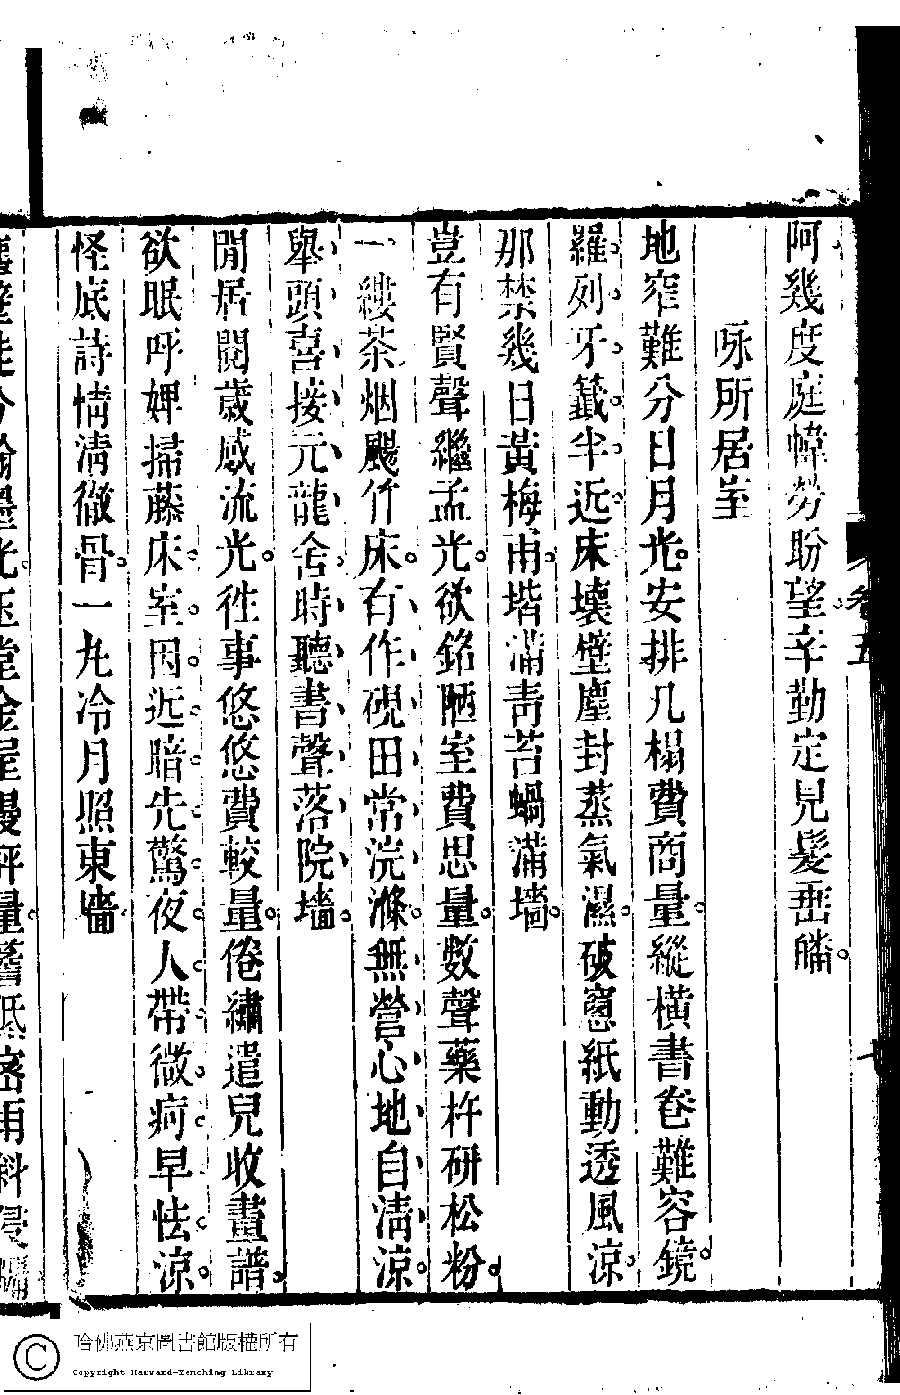 阿幾度庭幃勞盼望辛勤定見髮垂皤
咏所居室
地窄難分日月光安排几榻費商量縱橫書卷難容鏡
羅列牙籤半近床壞壁塵封蒸氣濕破窻紙動透風涼
那禁幾日黃梅雨堦滿靑苔蝸滿墻
豈有賢聲繼孟光欲銘陋室費思量數聲藥杵研松粉
一縷茶烟颺竹床有作硯田常浣滌無營心地自淸涼
舉頭喜接元龍舍時聽書聲落院墻
閒居閱歲感流光徃事悠悠費較量倦繡遣兒收畫譜
欲眠呼婢掃藤床室因近暗先驚夜人帶微痾早怯涼
怪底詩情淸徹骨一丸冷月照東墻
光玉堂金屋謾評量
卷五
七
哈佛燕京圖書館版權所有
Copyright Harvard-Yenching Library